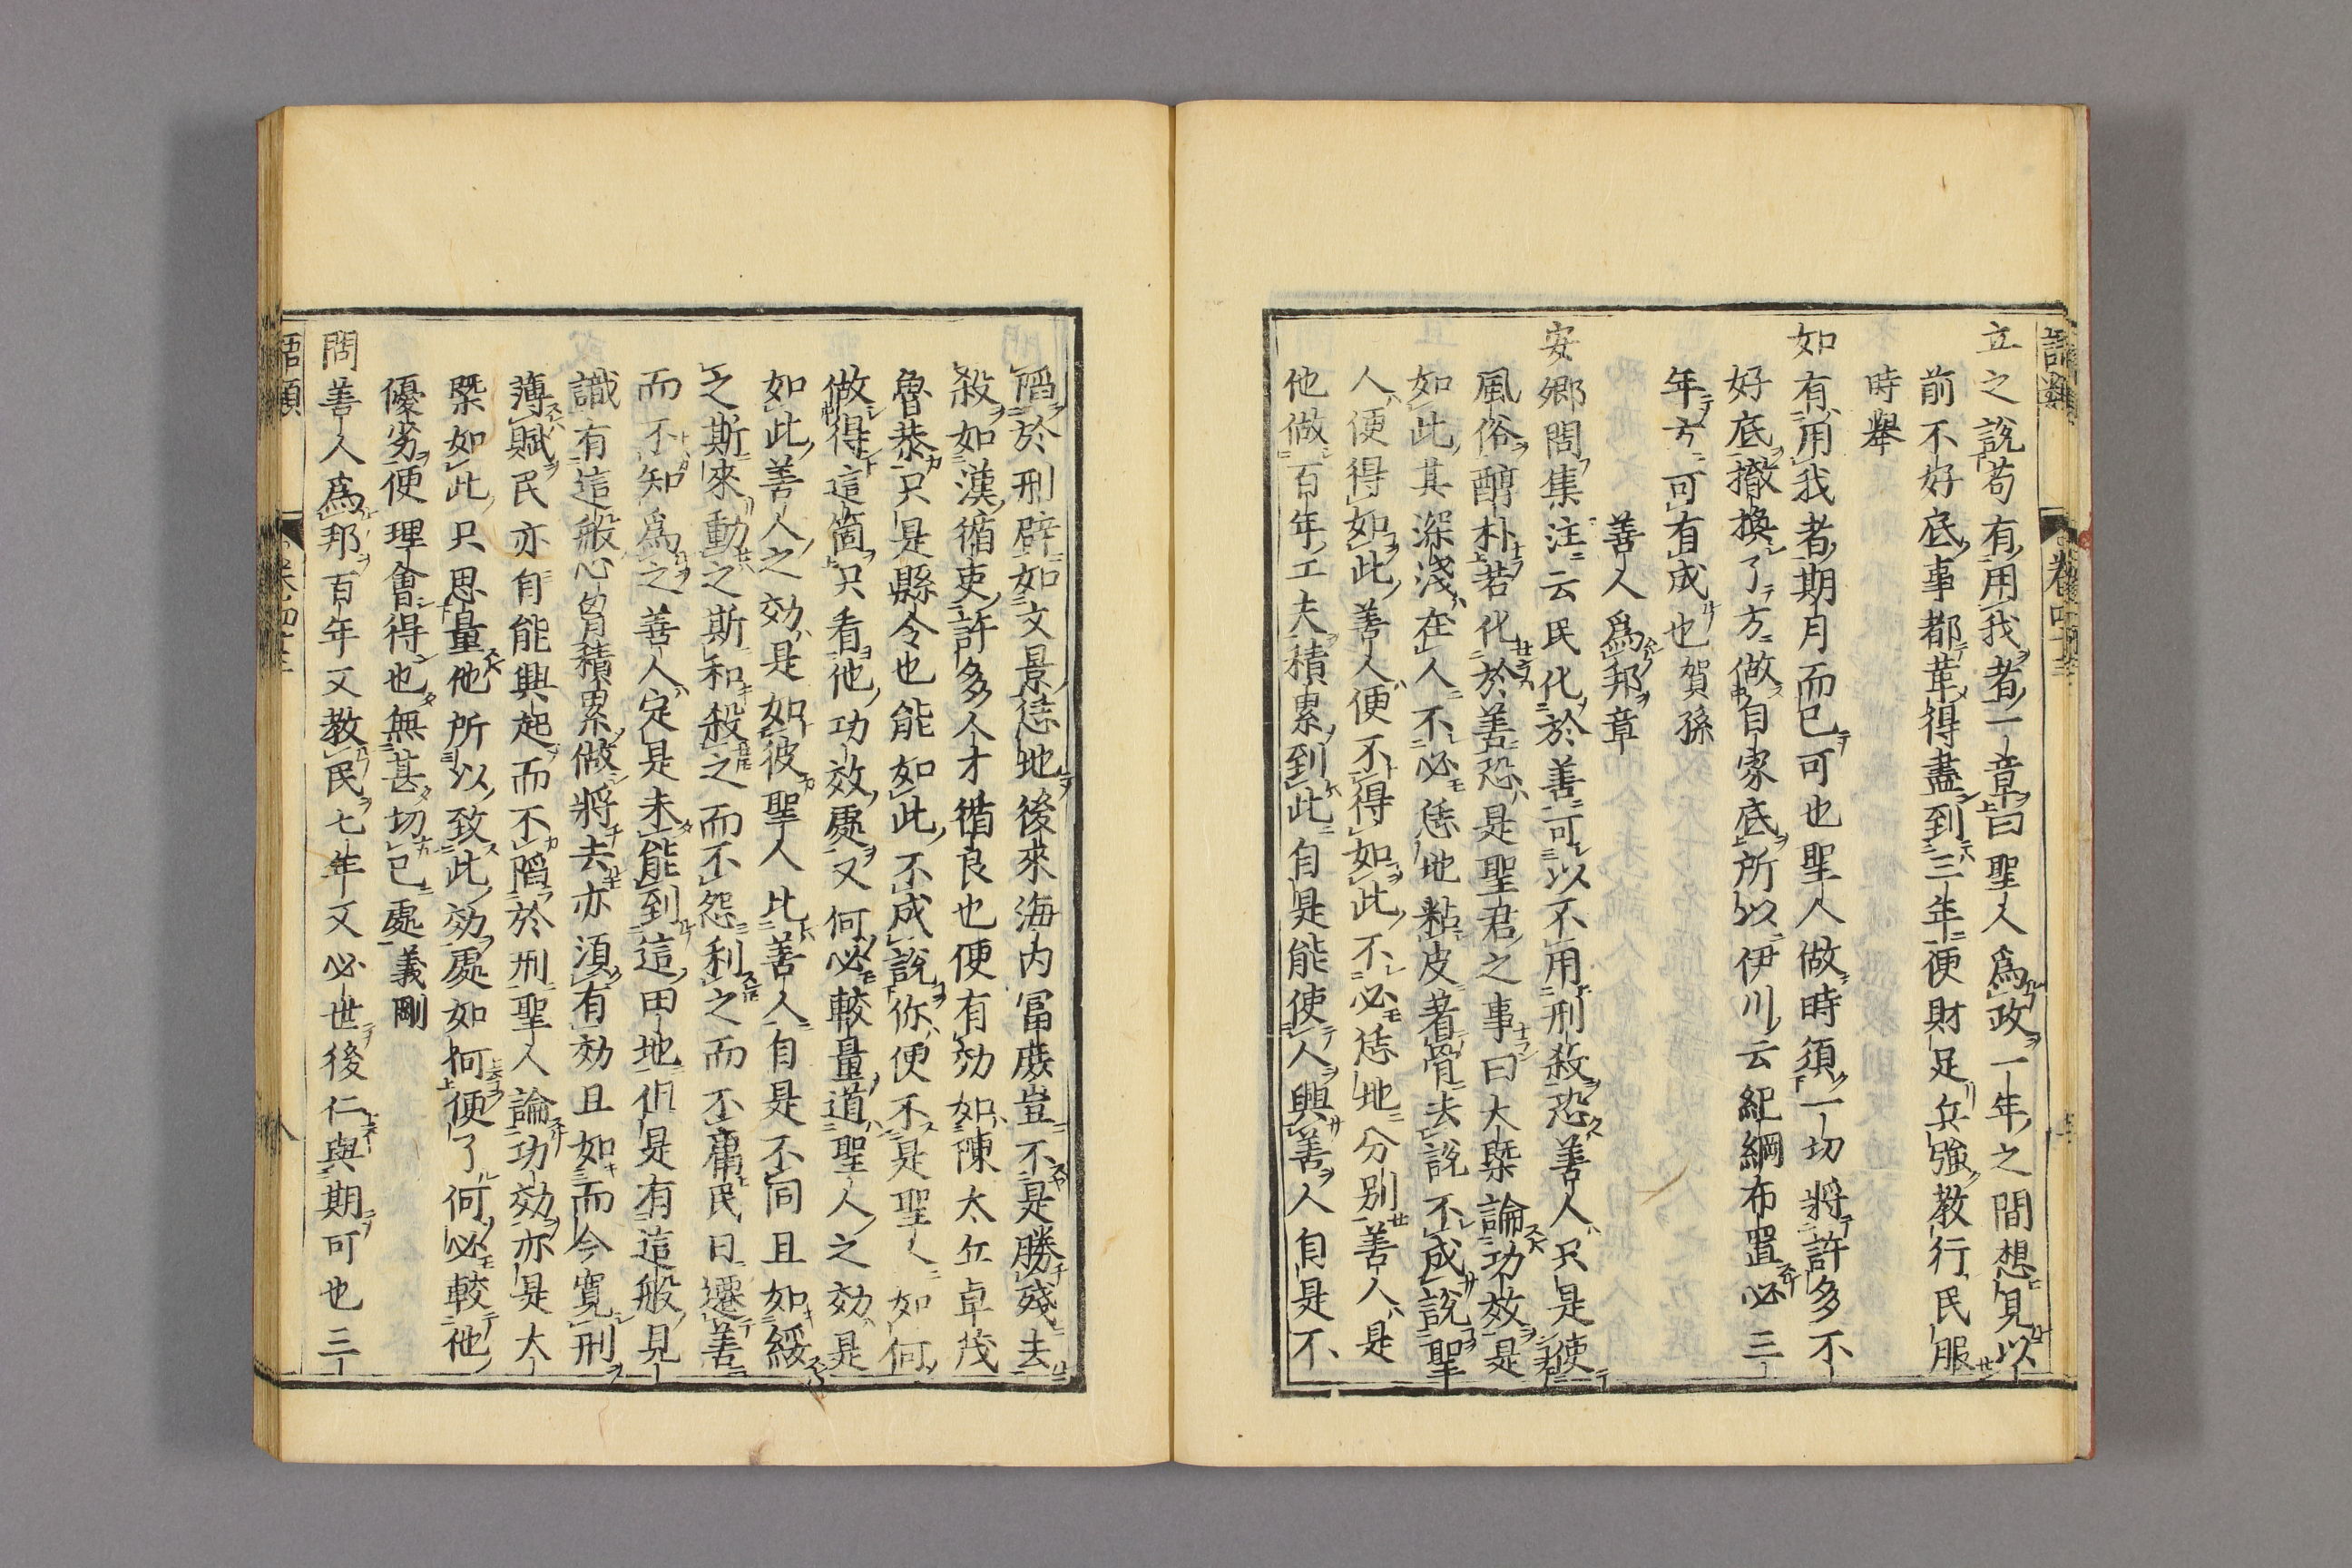 語類 卷四十三
立之說苟有用我者一章曰聖人爲政一年之間想見以
前不好底事都革得盡到三年便財足兵強教行民服
時舉
如有用我者期月而已可也聖人做時須一切將許多不
好底撤換了方做自家底所以伊川云紀綱布置必三
年方可有成也賀孫
善人爲邦章
安卿問集注云民化於善可以不用刑殺恐善人只是使
風俗醇朴若化於善恐是聖君之事曰大槩論功效是
如此其深淺在人不必恁地粘皮著骨去說不成說聖
人便得如此善人便不得如此不必恁地分別善人是
他做百年工夫積累到此自是能使人興善人自是不
陷於刑辟如文景恁地後來海内富庶豈不是勝殘去
殺如漢循吏許多人才循良也便有効如陳太丘卓茂
魯恭只是縣令也能如此不成說你便不是聖人如何
做得這箇只看他功效處又何必較量道聖人之効是
如此善人之効是如彼聖人比善人自是不同且如綏
之斯來動之斯和殺之而不怨利之而不庸民日遷善
而不知爲之善人定是未能到這田地但是有這般見
識有這般心胷積累做將去亦須有効且如而今寛刑
薄賦民亦自能興起而不陷於刑聖人論功効亦是大
槩如此只思量他所以致此効處如何便了何必較他
優劣便理會得也無甚切己處義剛
問善人爲邦百年又教民七年又必世後仁與期可也三
語類 卷四十三 八